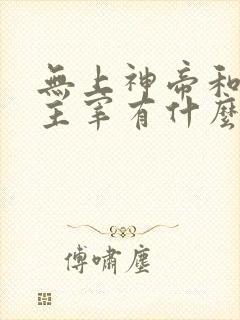 無上神帝和
主宰有什麼
傅嘯塵